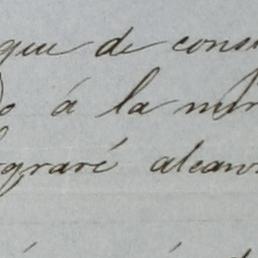 que de cons
á la mir
lograré alcans